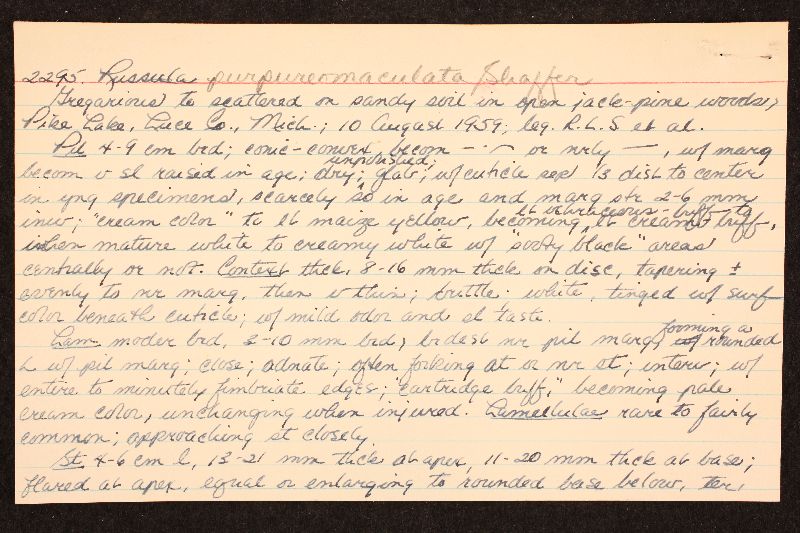 2295. Russula purpureomaculata Shaffer
Gregarious to scattered on sandy soil in open jack-pine woods,
Pike Lake, Luce Co., Mich.; 10 August 1959; leg. R.L.S. et al.
Pil 4-9 cm brd; conic-convex, becom or nrly —, w/ marg
becom v sl raised in age; dry; unpolished; glab; w/ cuticle sep ⅓ dist to center
in yng specimens, scarcely so in age and marg str 2-6 mm
inw; "cream color" to lt maize yellow, becoming lt cream buff,
when mature white to creamy white w/ "sooty black" areas
centrally or not. Context thck, 8-16 mm thck on disc, tapering ±
evenly to nr marg, then v thin; brittle; white, tinged w/ surf
color beneath cuticle; w/ mild odor and sl taste.
Lam moder brd, 3-10 mm brd, brdest nr pil marg, forming a rounded
L w/ pil marg; close; adnate; often forking at or nr st; interv; w/
entire to minutely fimbriate edges; "cartridge buff," becoming pale
cream color, unchanging when injured. Lamellulae rare to fairly
common; approaching st closely.
St 4-6 cm l, 13-21 mm thck at apex, 11-20 mm thck at base;
flared at apex, equal or enlarging to rounded base below, ter,